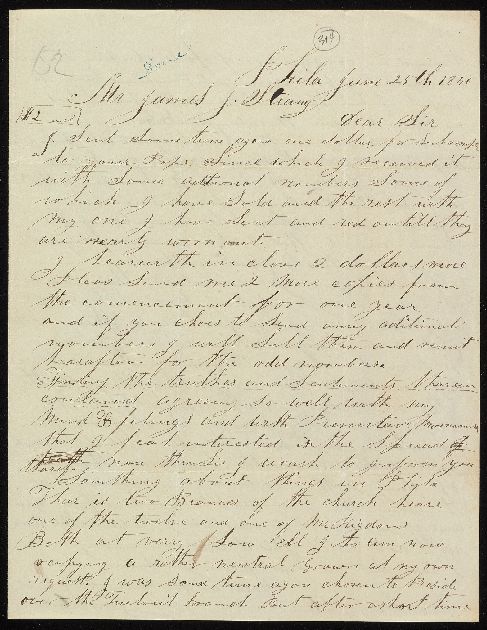 52
Done
313
Phila June 25th 1846
Mr James J. Strang
$2
Dear Sir
I Sent Sometime agoe one dollar for Subscrip
to your Paper, Since which I received it
with Some aditional numbers Some of
which I have Sold and the rest with
my one I have lent and red untill they
are nearly worn out.
I hearwith in close 2 dollars more
Pleas Send me 2 More copies from
the commencement for one year
and if you choes to Send any aditional
numbers I will Sell them and remit
hereafter for the odd numbers.
Finding the truthes and Sentiments therein
contained agreeing So well with my
Mind & feelings and with Primitive Mormonism
that I feal interested in the Spread of
thereof now thinks I wish to inform you
Something about things in Phila
Thear is two Branches of the church heare
one of the twelve and one of McRigdons
Both at very Low ebb I to am now
occupying a rather neutral Ground at my own
request I was Some time agoe chosen to Preside
over the Twelveit branch but after a short time